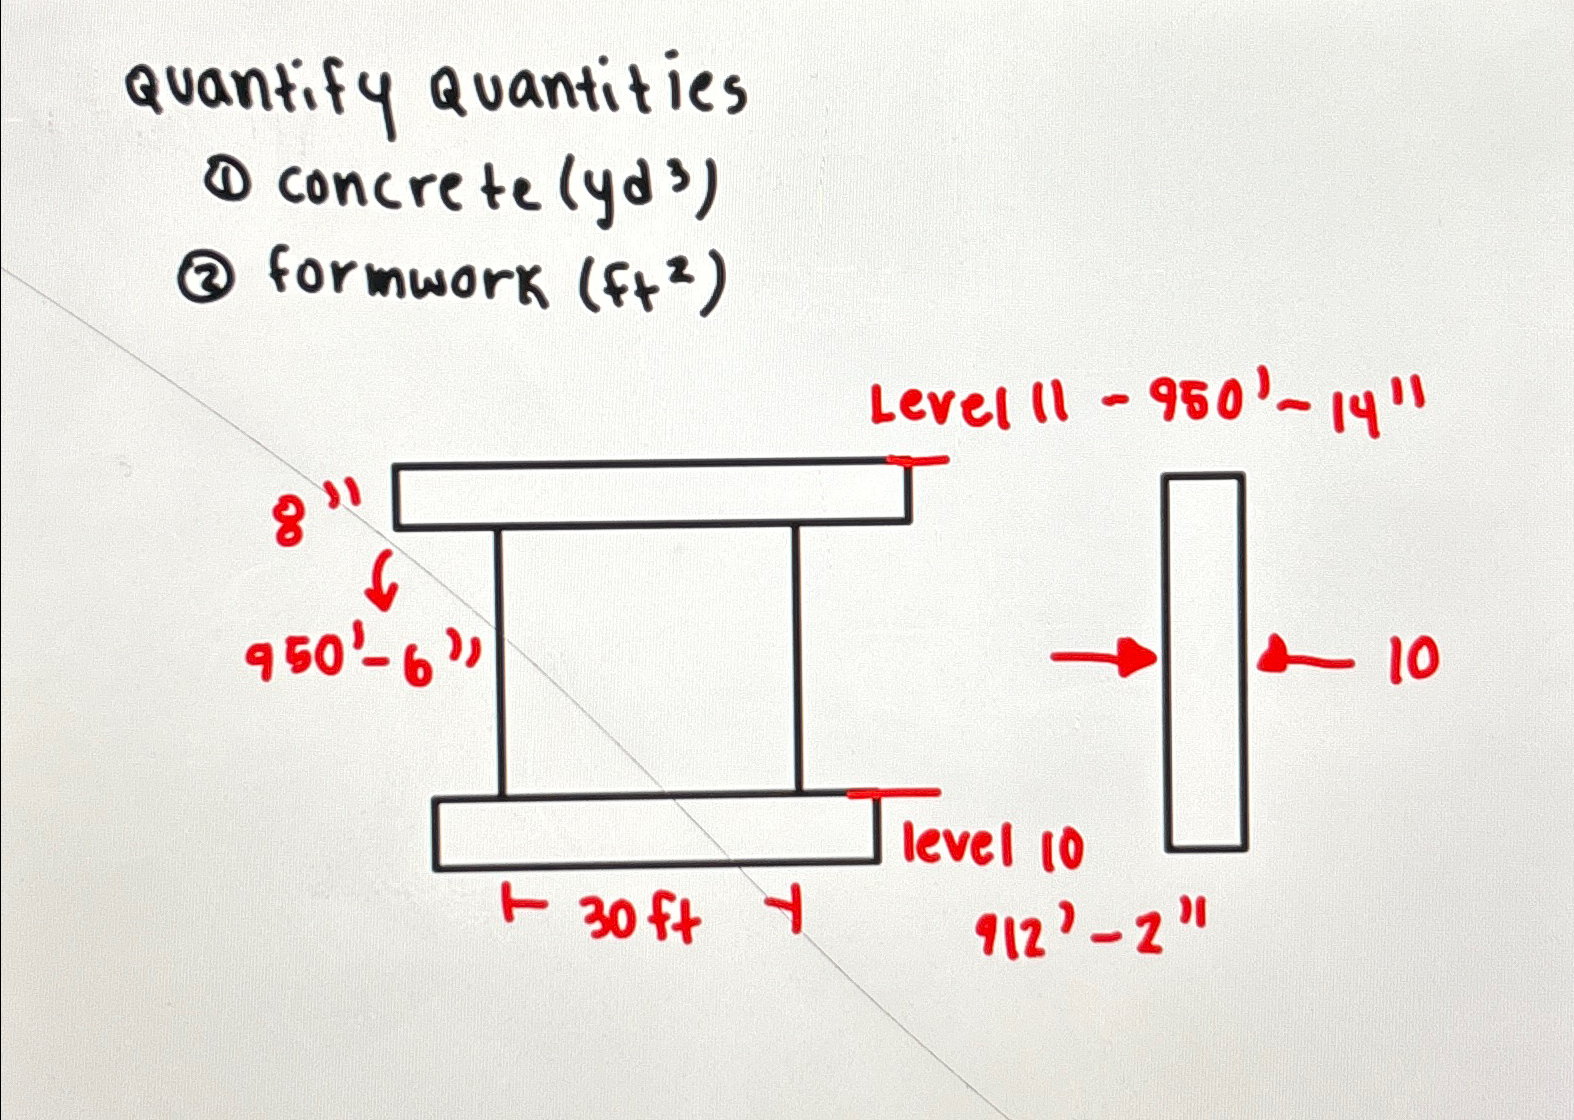 Quantify Quantities
① concrete (yd³)
② formwork (ft²)
Level 11 - 950' - 14"
8"
950' - 6"
10
level 10
30 ft
912' - 2"